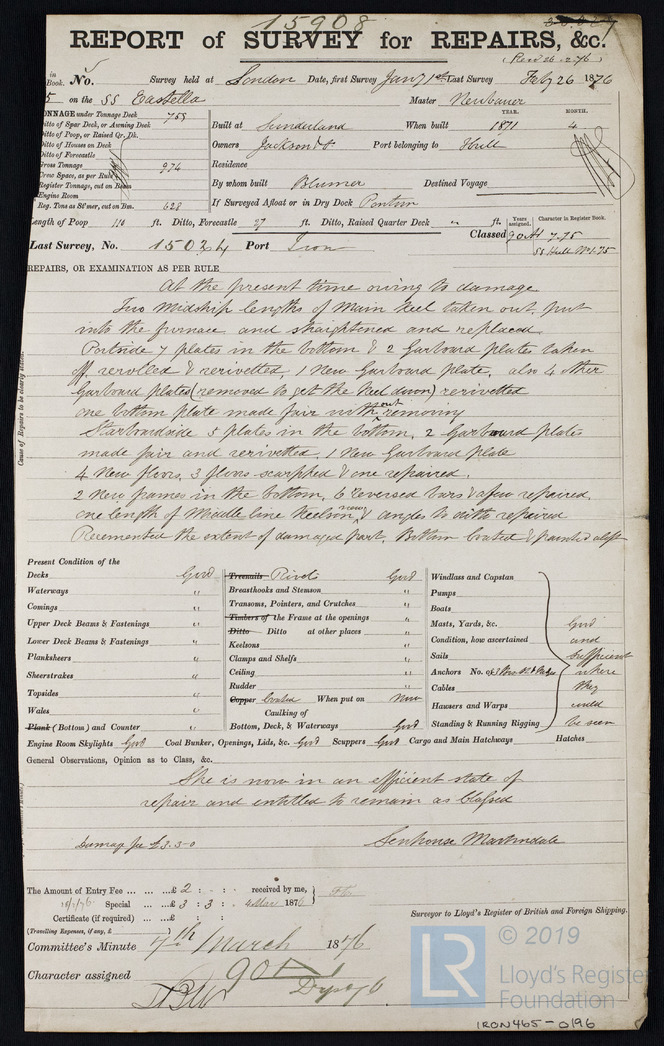 15908
REPORT of SURVEY for REPAIRS, &c.
(Recd 26.2.76)
in Book. No. Survey held at London Date, first Survey Jany 1st Last Survey Feby 26 1876
5 on the SS Eastella Master Neubauer
TONNAGE under Tonnage Deck 755
Ditto of Spar Deck, or Awning Deck
Ditto of Poop, or Raised Qr. Dk.
Ditto of Houses on Deck
Ditto of Forecastle
Gross Tonnage 974
Crew Space, as per Rule
Register Tonnage, out on Beam
Engine Room
Reg. Tons as St'mer, cut on Bm. 628
YEAR. MONTH.
Built at Sunderland When built 1871 4
Owners Jackson & Co Port belonging to Hull
Residence
By whom built Blumer Destined Voyage
If Surveyed Afloat or in Dry Dock Pontoon
Length of Poop 110 ft. Ditto, Forecastle 27 ft. Ditto, Raised Quarter Deck " ft.
Classed Years assigned. Character in Register Book.
90A1 7.75
SS Hull No1.75
Last Survey, No. 15024 Port Iron
REPAIRS, OR EXAMINATION AS PER RULE
Cause of Repairs to be clearly stated.
At the present time owing to damage
Two Midship lengths of Main Keel taken out, put
into the furnace and straightened and replaced
Portside 7 plates in the bottom & 2 Garboard plates taken
off, rerolled & rerivetted, 1 New Garboard plate, also 4 other
Garboard plates (removed to get the Keel down) rerivetted
one bottom plate made fair without removing
Starboardside 5 plates in the bottom, 2 Garboard plates
made fair and rerivetted, 1 New Garboard plate
4 New floors, 3 floors scarphed & one repaired,
2 New frames in the bottom, 6 reversed bars & a few repaired,
one length of Middle line Keelson new & angles to ditto repaired
Recemented the extent of damaged part, Bottom Coated & painted aloft
Present Condition of the
Decks Good
Waterways "
Comings "
Upper Deck Beams & Fastenings "
Lower Deck Beams & Fastenings "
Planksheers "
Sheerstrakes "
Topsides "
Wales "
Plank (Bottom) and Counter "
Treenails Rivets Good
Breasthooks and Stemson "
Transoms, Pointers, and Crutches "
Timbers of the Frame at the openings "
Ditto Ditto at other places "
Keelsons "
Clamps and Shelfs "
Ceiling "
Rudder "
Copper Coated When put on Now
Caulking of
Bottom, Deck, & Waterways Good
Windlass and Capstan
Pumps
Boats
Masts, Yards, &c.
Condition, how ascertained
Sails
Anchors No. of
Cables
Hawsers and Warps
Standing & Running Rigging
Good
and
sufficient
where
they
could
be seen
Engine Room Skylights Good Coal Bunker, Openings, Lids, &c. Good Scuppers Good Cargo and Main Hatchways Hatches
General Observations, Opinion as to Class, &c.
She is now in an efficient state of
repair and entitled to remain as Classed
Damage fee £3.3-0 Senhouse Martindale
The Amount of Entry Fee ... ... ...£ 2 : - : received by me,
Special ... ...£ 3 : 3 : 4 Mar 1876
Certificate (if required) ... ...£ : :
(Travelling Expenses, if any, £ )
Surveyor to Lloyd's Register of British and Foreign Shipping.
Committee's Minute 7th March 1876
Character assigned 90A1
© 2019
LR
Lloyd's Register
Foundation
IRON465-0196